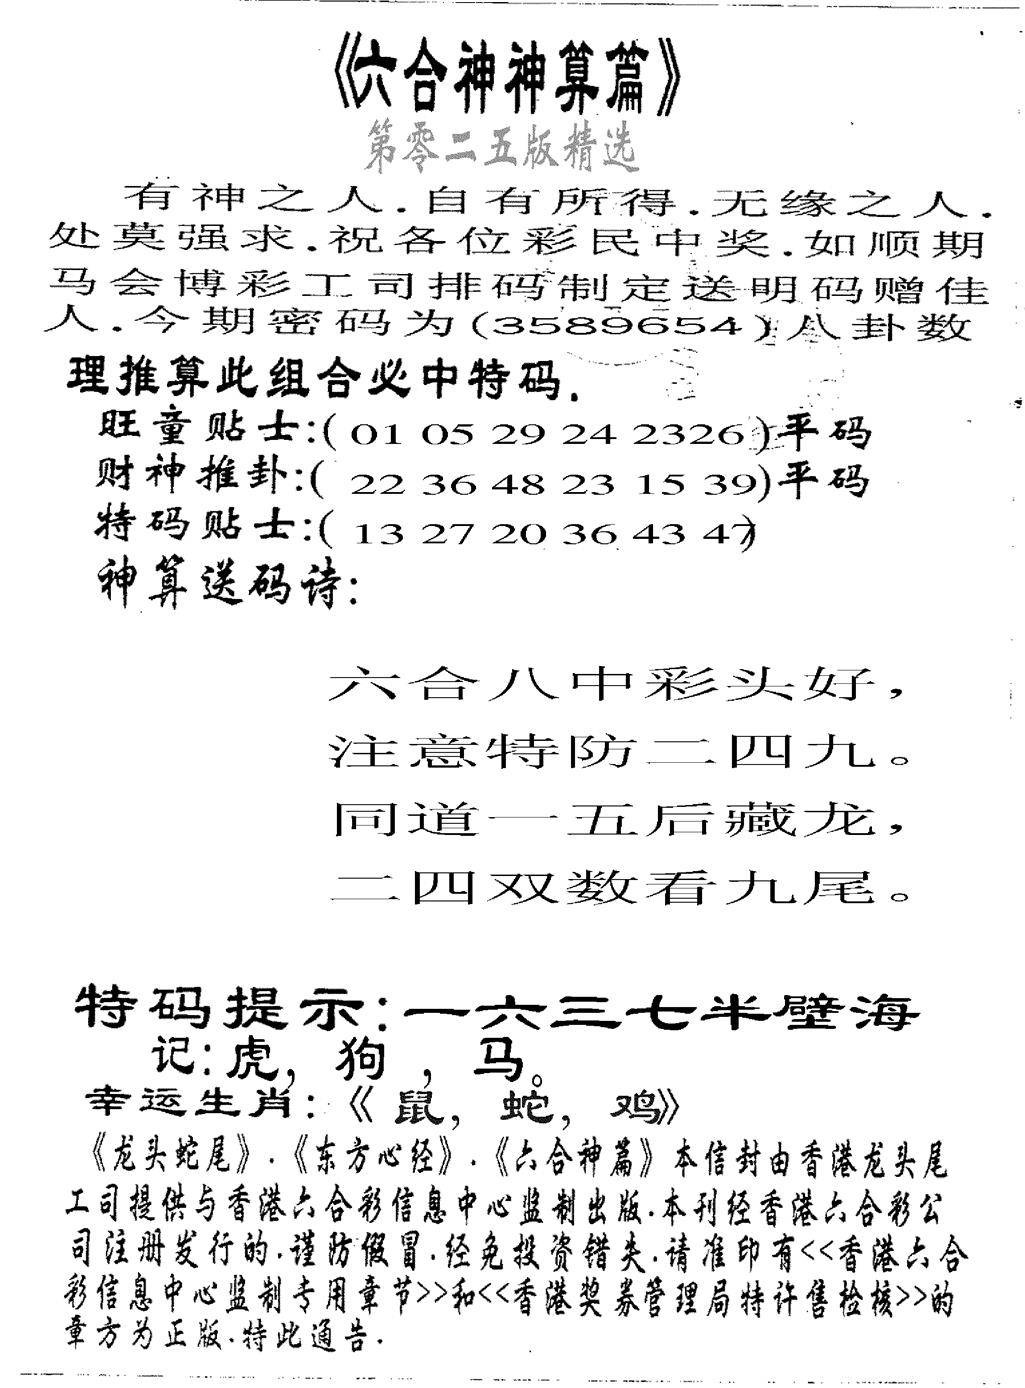 《六合神神算篇》
第零二五版精选
有神之人.自有所得.无缘之人.
处莫强求.祝各位彩民中奖.如顺期
马会博彩工司排码制定送明码赠佳
人.今期密码为(3589654)八卦数
理推算此组合必中特码.
旺童贴士:(01 05 29 24 2326)平码
财神推卦:(22 36 48 23 15 39)平码
特码贴士:(13 27 20 36 43 47)
神算送码诗:
六合八中彩头好,
注意特防二四九。
同道一五后藏龙,
二四双数看九尾。
特码提示:一六三七半壁海
记:虎,狗,马。
幸运生肖:《鼠,蛇,鸡》
《龙头蛇尾》.《东方心经》.《六合神篇》本信封由香港龙头尾
工司提供与香港六合彩信息中心监制出版.本刊经香港六合彩公
司注册发行的.谨防假冒.经免投资错失.请准印有<<香港六合
彩信息中心监制专用章节>>和<<香港奖券管理局特许售检核>>的
章方为正版.特此通告.